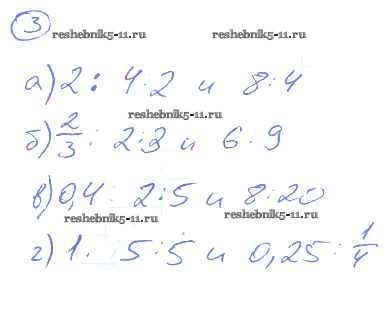 3
reshebnik5-11.ru reshebnik5-11.ru
а) 2 : 4:2 и 8:4
reshebnik5-11.ru
б) 2/3 : 2:3 и 6:9
в) 0,4 : 2:5 и 8:20
reshebnik5-11.ru reshebnik5-11.ru
г) 1. 5:5 и 0,25 : 1/4